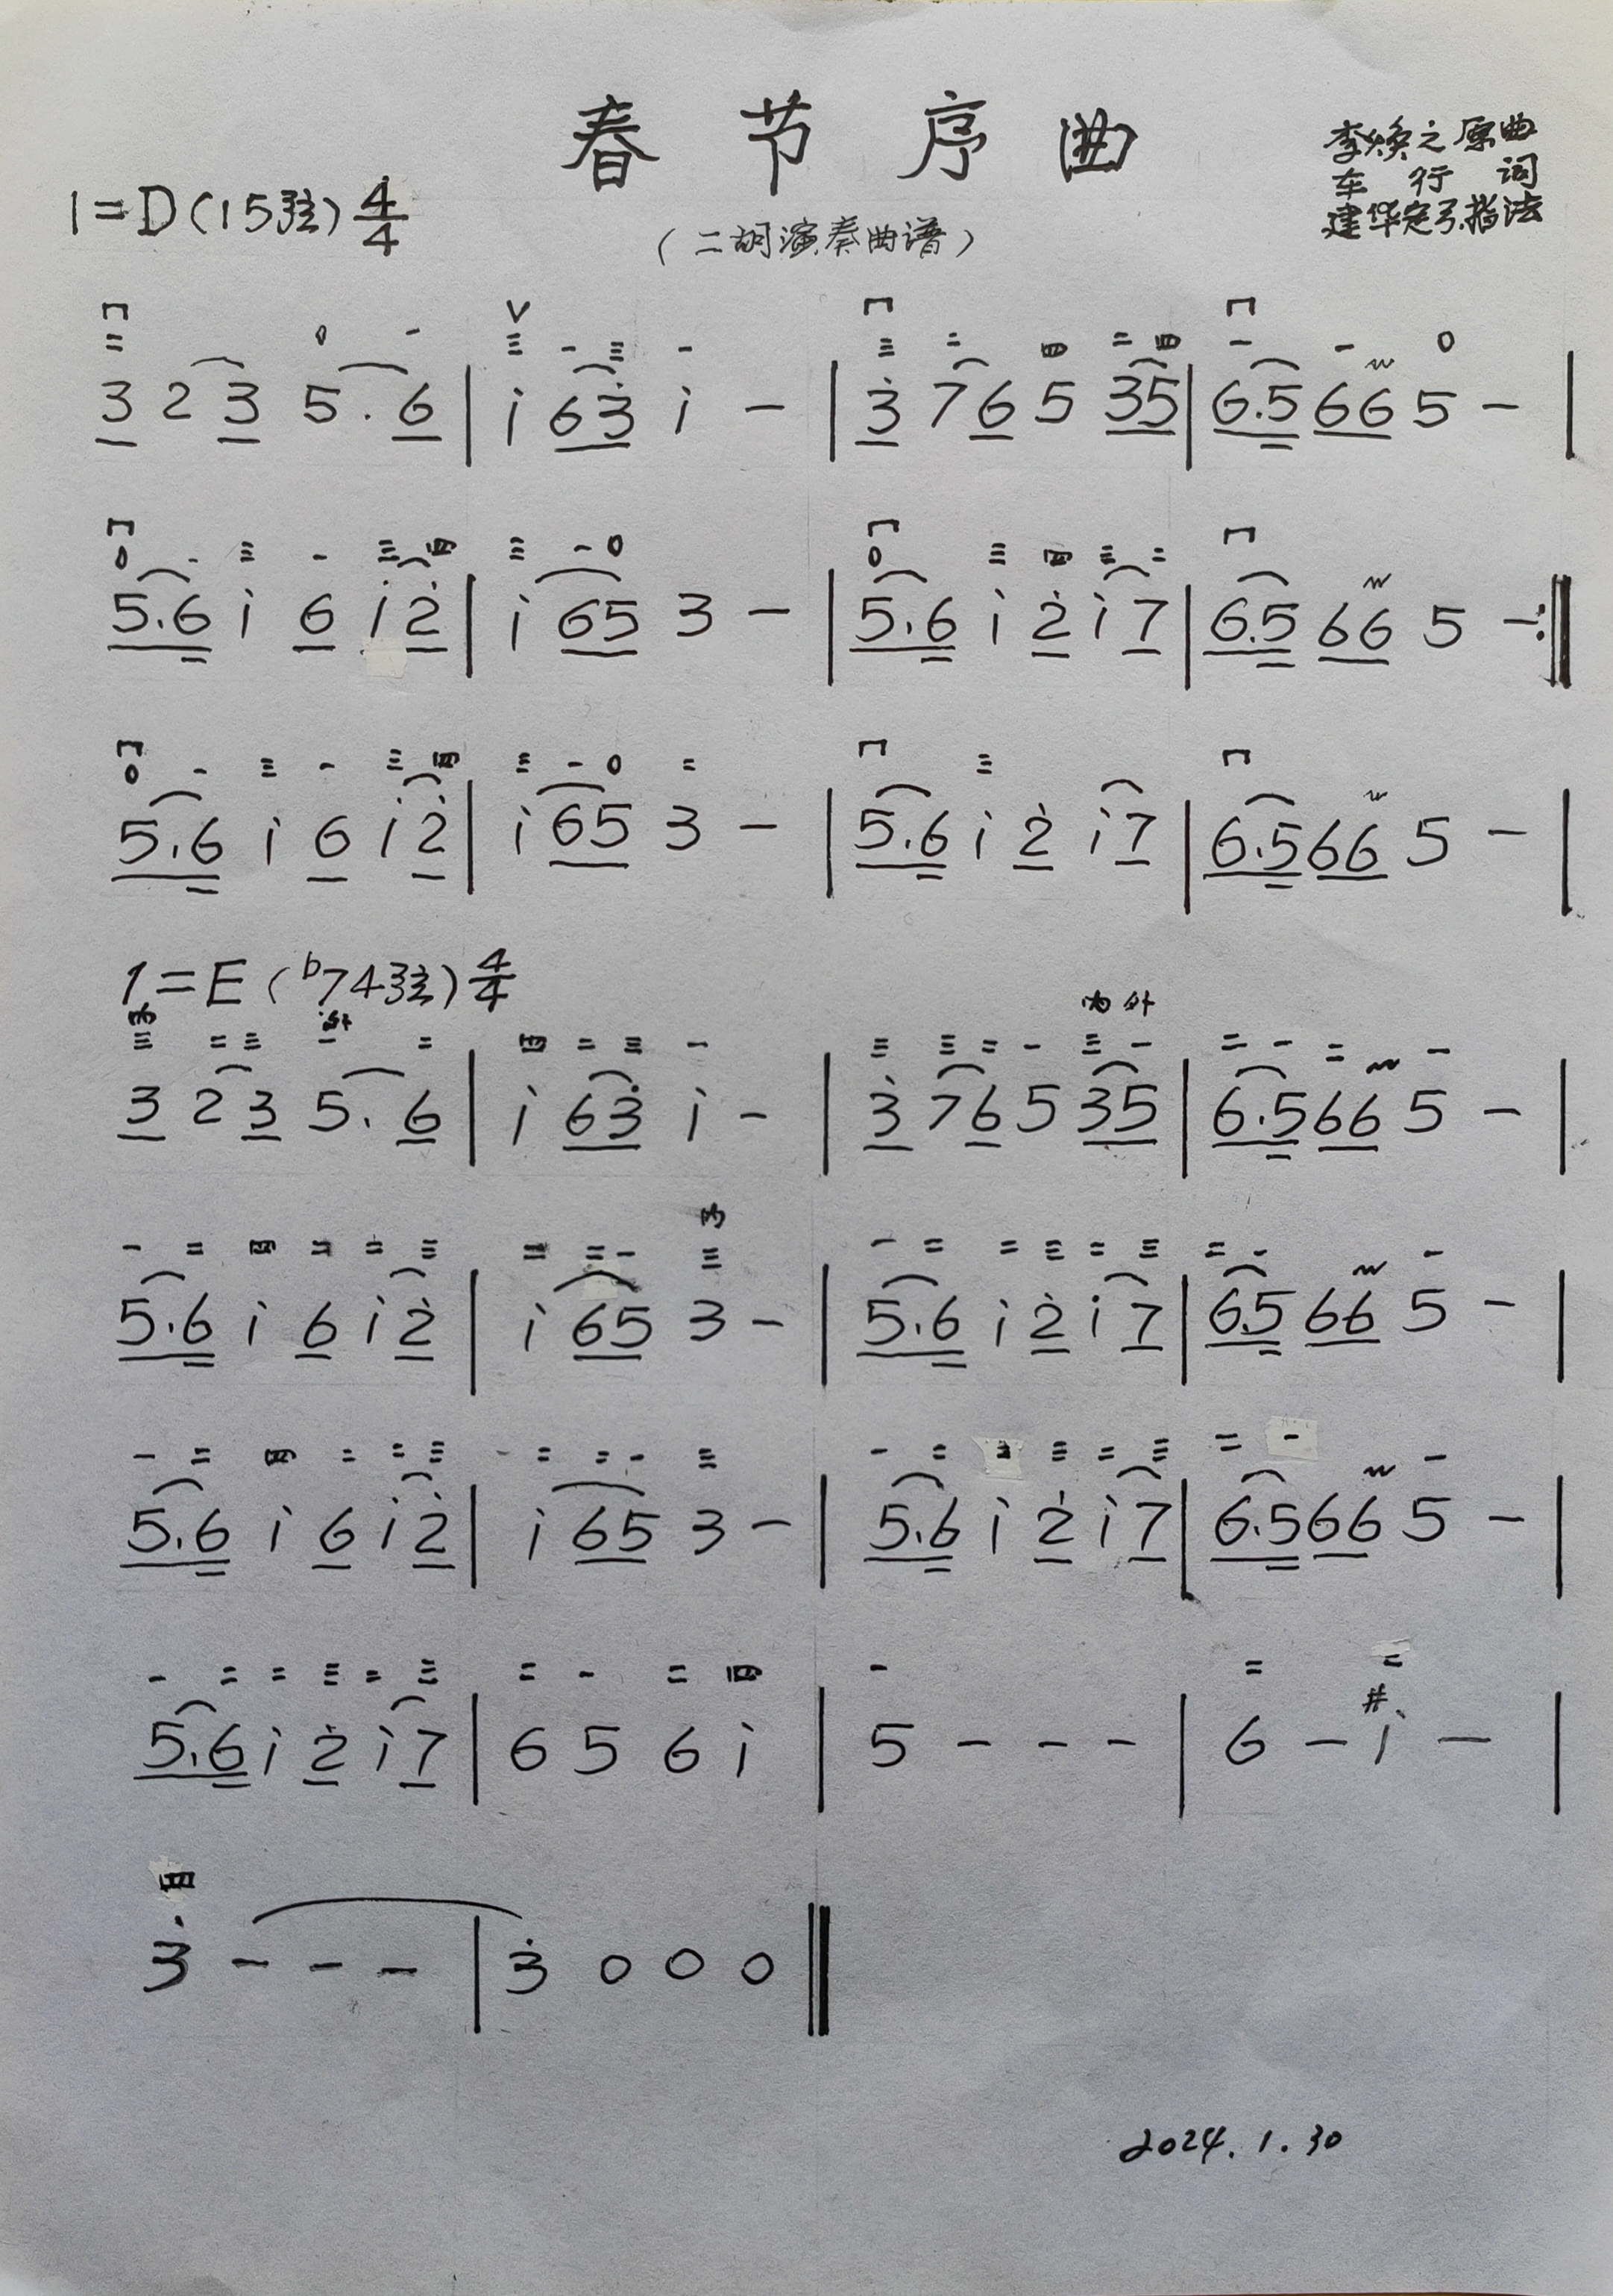 春节序曲
李焕之原曲
车行词
建华定弓指法
1=D(15弦) 4/4
(二胡演奏曲谱)
3 2 3 5. 6 | i 6 3̇ i - | 3̇ 7 6 5 3 5 | 6. 5 6 6 5 - |
5. 6 i 6 i 2̇ | i 6 5 3 - | 5. 6 i 2̇ i 7 | 6. 5 6 6 5 - :||
5. 6 i 6 i 2̇ | i 6 5 3 - | 5. 6 i 2̇ i 7 | 6. 5 6 6 5 - |
1=E(♭74弦) 4/4
内 外 内 外
3 2 3 5. 6 | i 6 3̇ i - | 3̇ 7 6 5 3 5 | 6. 5 6 6 5 - |
内
5. 6 i 6 i 2̇ | i 6 5 3 - | 5. 6 i 2̇ i 7 | 6. 5 6 6 5 - |
5. 6 i 6 i 2̇ | i 6 5 3 - | 5. 6 i 2̇ i 7 | 6. 5 6 6 5 - |
一 二 二 三 二 三 二 一 二 四 一 二 二
5. 6 i 2̇ i 7 | 6 5 6 i | 5 - - - | 6 - #i - |
四
3̇ - - - | 3̇ 0 0 0 ||
2024.1.30